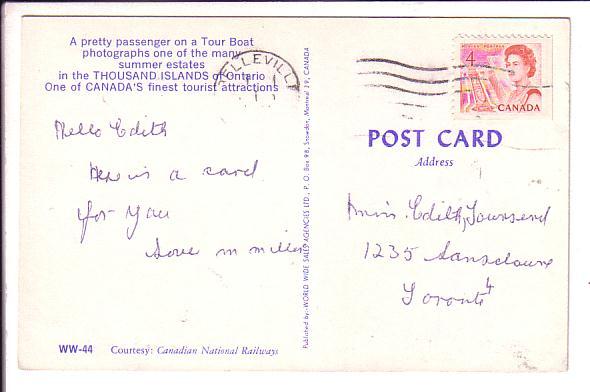 A pretty passenger on a Tour Boat
photographs one of the many
summer estates
in the THOUSAND ISLANDS of Ontario
One of CANADA'S finest tourist attractions
BELLEVILLE
4
CANADA
Hello Edith
Here is a card
for you
Love m miller
POST CARD
Address
Miss. Edith Townsend
1235 Lansdowne
Toronto 4
Published by:-WORLD WIDE SALES AGENCIES LTD., P. O. Box 98, Snowdon, Montreal 29, CANADA
WW-44 Courtesy: Canadian National Railways